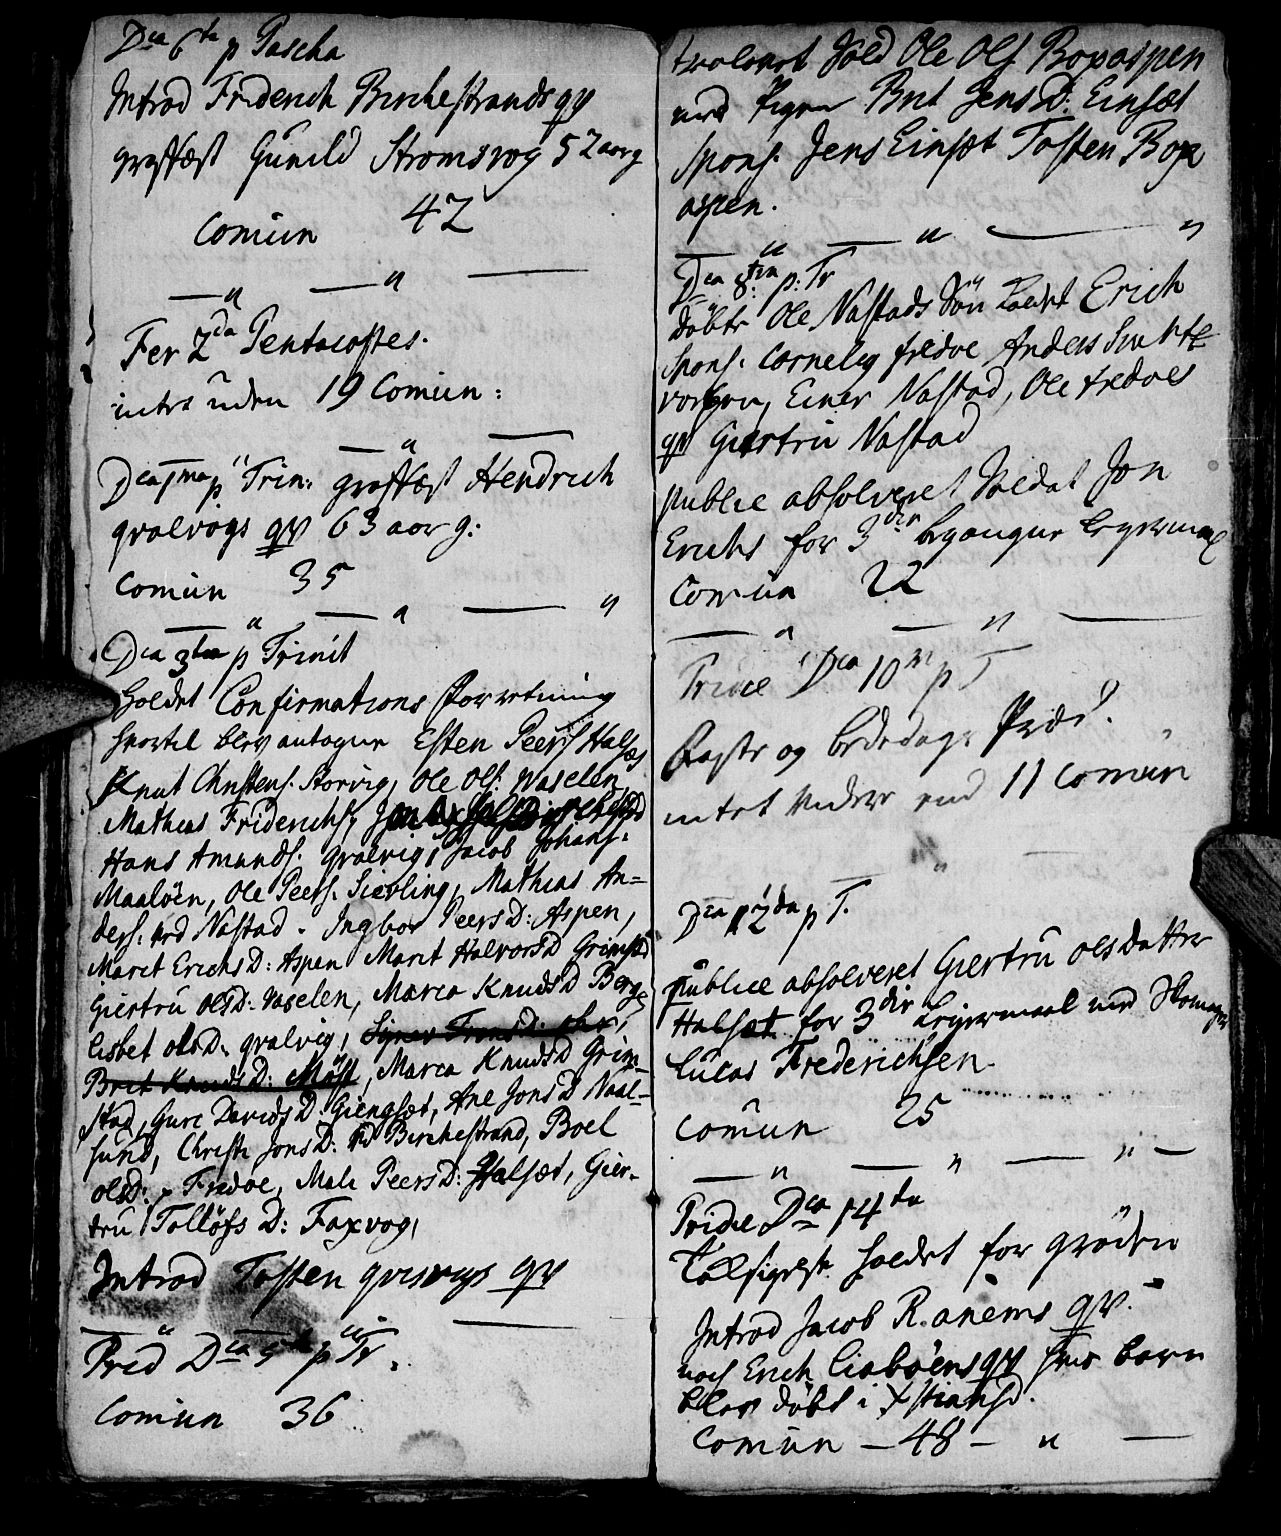 Dca 6ta p Pascha
Introd Friderich Birchestrands qv
graffæst Gunild Stromsvog 52 aar g
Comun 42
Fer 2da Pentacostes.
intet uden 19 Comun:
Dca 1ma p Trin: graffæst Hendrich
qvalvogs qv 63 aar g:
Comun 35
Dca 3tia p Trinit
Holdet Confirmations Forretning
hvortil blev antagne Esten Peers Halsæt
Knut Christens. Storvig, Ole Ols. Vaselen,
Mathias Friderichs,
Hans Amunds. qvalvig, Jacob Johans.
Maaløen, Ole Peers. Sievling, Mathias An=
ders. ved Nastad. Ingbor Peers D: Aspen,
Marit Erichs D: Aspen Marit Halvors D Grimstad
Giertru Ols D: Vaselen, Marea Knuds D Berg,
lisbet Ols D: qvalvig,
Brit Knuds D: Møst, Marea Knuds D Grim=
stad, Guri Davids D: Giengsæt, Ane Jons D Naal=
sund, Christi Jons D: Birchestrand, Boel
Ols D: Fredøe, Mali Peers D: Halsæt, Gier=
tru Tolløfs D: Faxvog,
Introd Tosten qvisvigs qv
Prid Dca 5ta p Tr.
Comun 36
trolovet Sold Ole Ols Boxaspen
med Pigen Brit Jens D: Einsæt
spons. Jens Einsæt Tosten Box
aspen.
Dca 8tva p: Tr
døbte Ole Nastads Søn kaldet Erich
spons. Cornelig fredøe Anders
Einer Nastad, Ole fredøes
qv Giertru Nastad
publice absolveret Soldat Jon
Erichs for 3die begangne Leyermaal
Comun 22
Pridie Dca 10m p T
Faste og bededags Præd.
intet videre end 11 Comun
Dca 12da p T.
publice absolveret Giertru Olsdatter
Halsæt for 3die Leyermaal med
Lucas Frederichsen
Comun 25
Pridie Dca 14ta
Taksigelse holdet for grøden
Introd Jacob R.anems qv.
noch Erich Liabøens qv hvis barn
blev døbt i Xstiansd.
Comun - 48 -